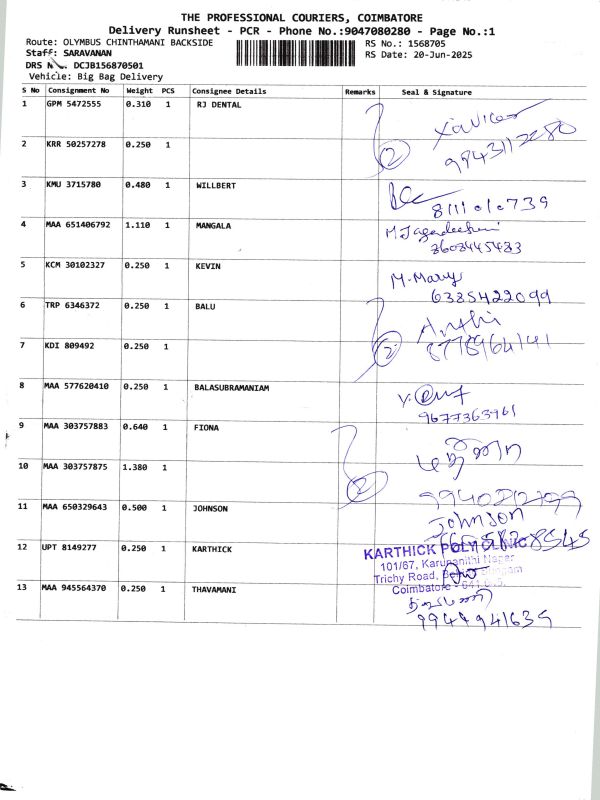 THE PROFESSIONAL COURIERS, COIMBATORE
Delivery Runsheet - PCR - Phone No.:9047080280 - Page No.:1
Route: OLYMBUS CHINTHAMANI BACKSIDE RS No.: 1568705
Staff: SARAVANAN RS Date: 20-Jun-2025
DRS No. DCJB156870501
Vehicle: Big Bag Delivery
S No Consignment No Weight PCS Consignee Details Remarks Seal & Signature
1 GPM 5472555 0.310 1 RJ DENTAL Xavier
2 KRR 50257278 0.250 1 2
3 KMU 3715780 0.480 1 WILLBERT
4 MAA 651406792 1.110 1 MANGALA M Jagadeeswari
8608445483
5 KCM 30102327 0.250 1 KEVIN M. Mary
6385422099
6 TRP 6346372 0.250 1 BALU
7 KDI 809492 0.250 1 2 8778964141
8 MAA 577620410 0.250 1 BALASUBRAMANIAM
9677363961
9 MAA 303757883 0.640 1 FIONA
10 MAA 303757875 1.380 1 2
11 MAA 650329643 0.500 1 JOHNSON Johnson
12 UPT 8149277 0.250 1 KARTHICK KARTHICK POLYCLINIC
101/67, Karupanithi Nagar
Trichy Road,
Coimbatore
13 MAA 945564370 0.250 1 THAVAMANI
9944941639